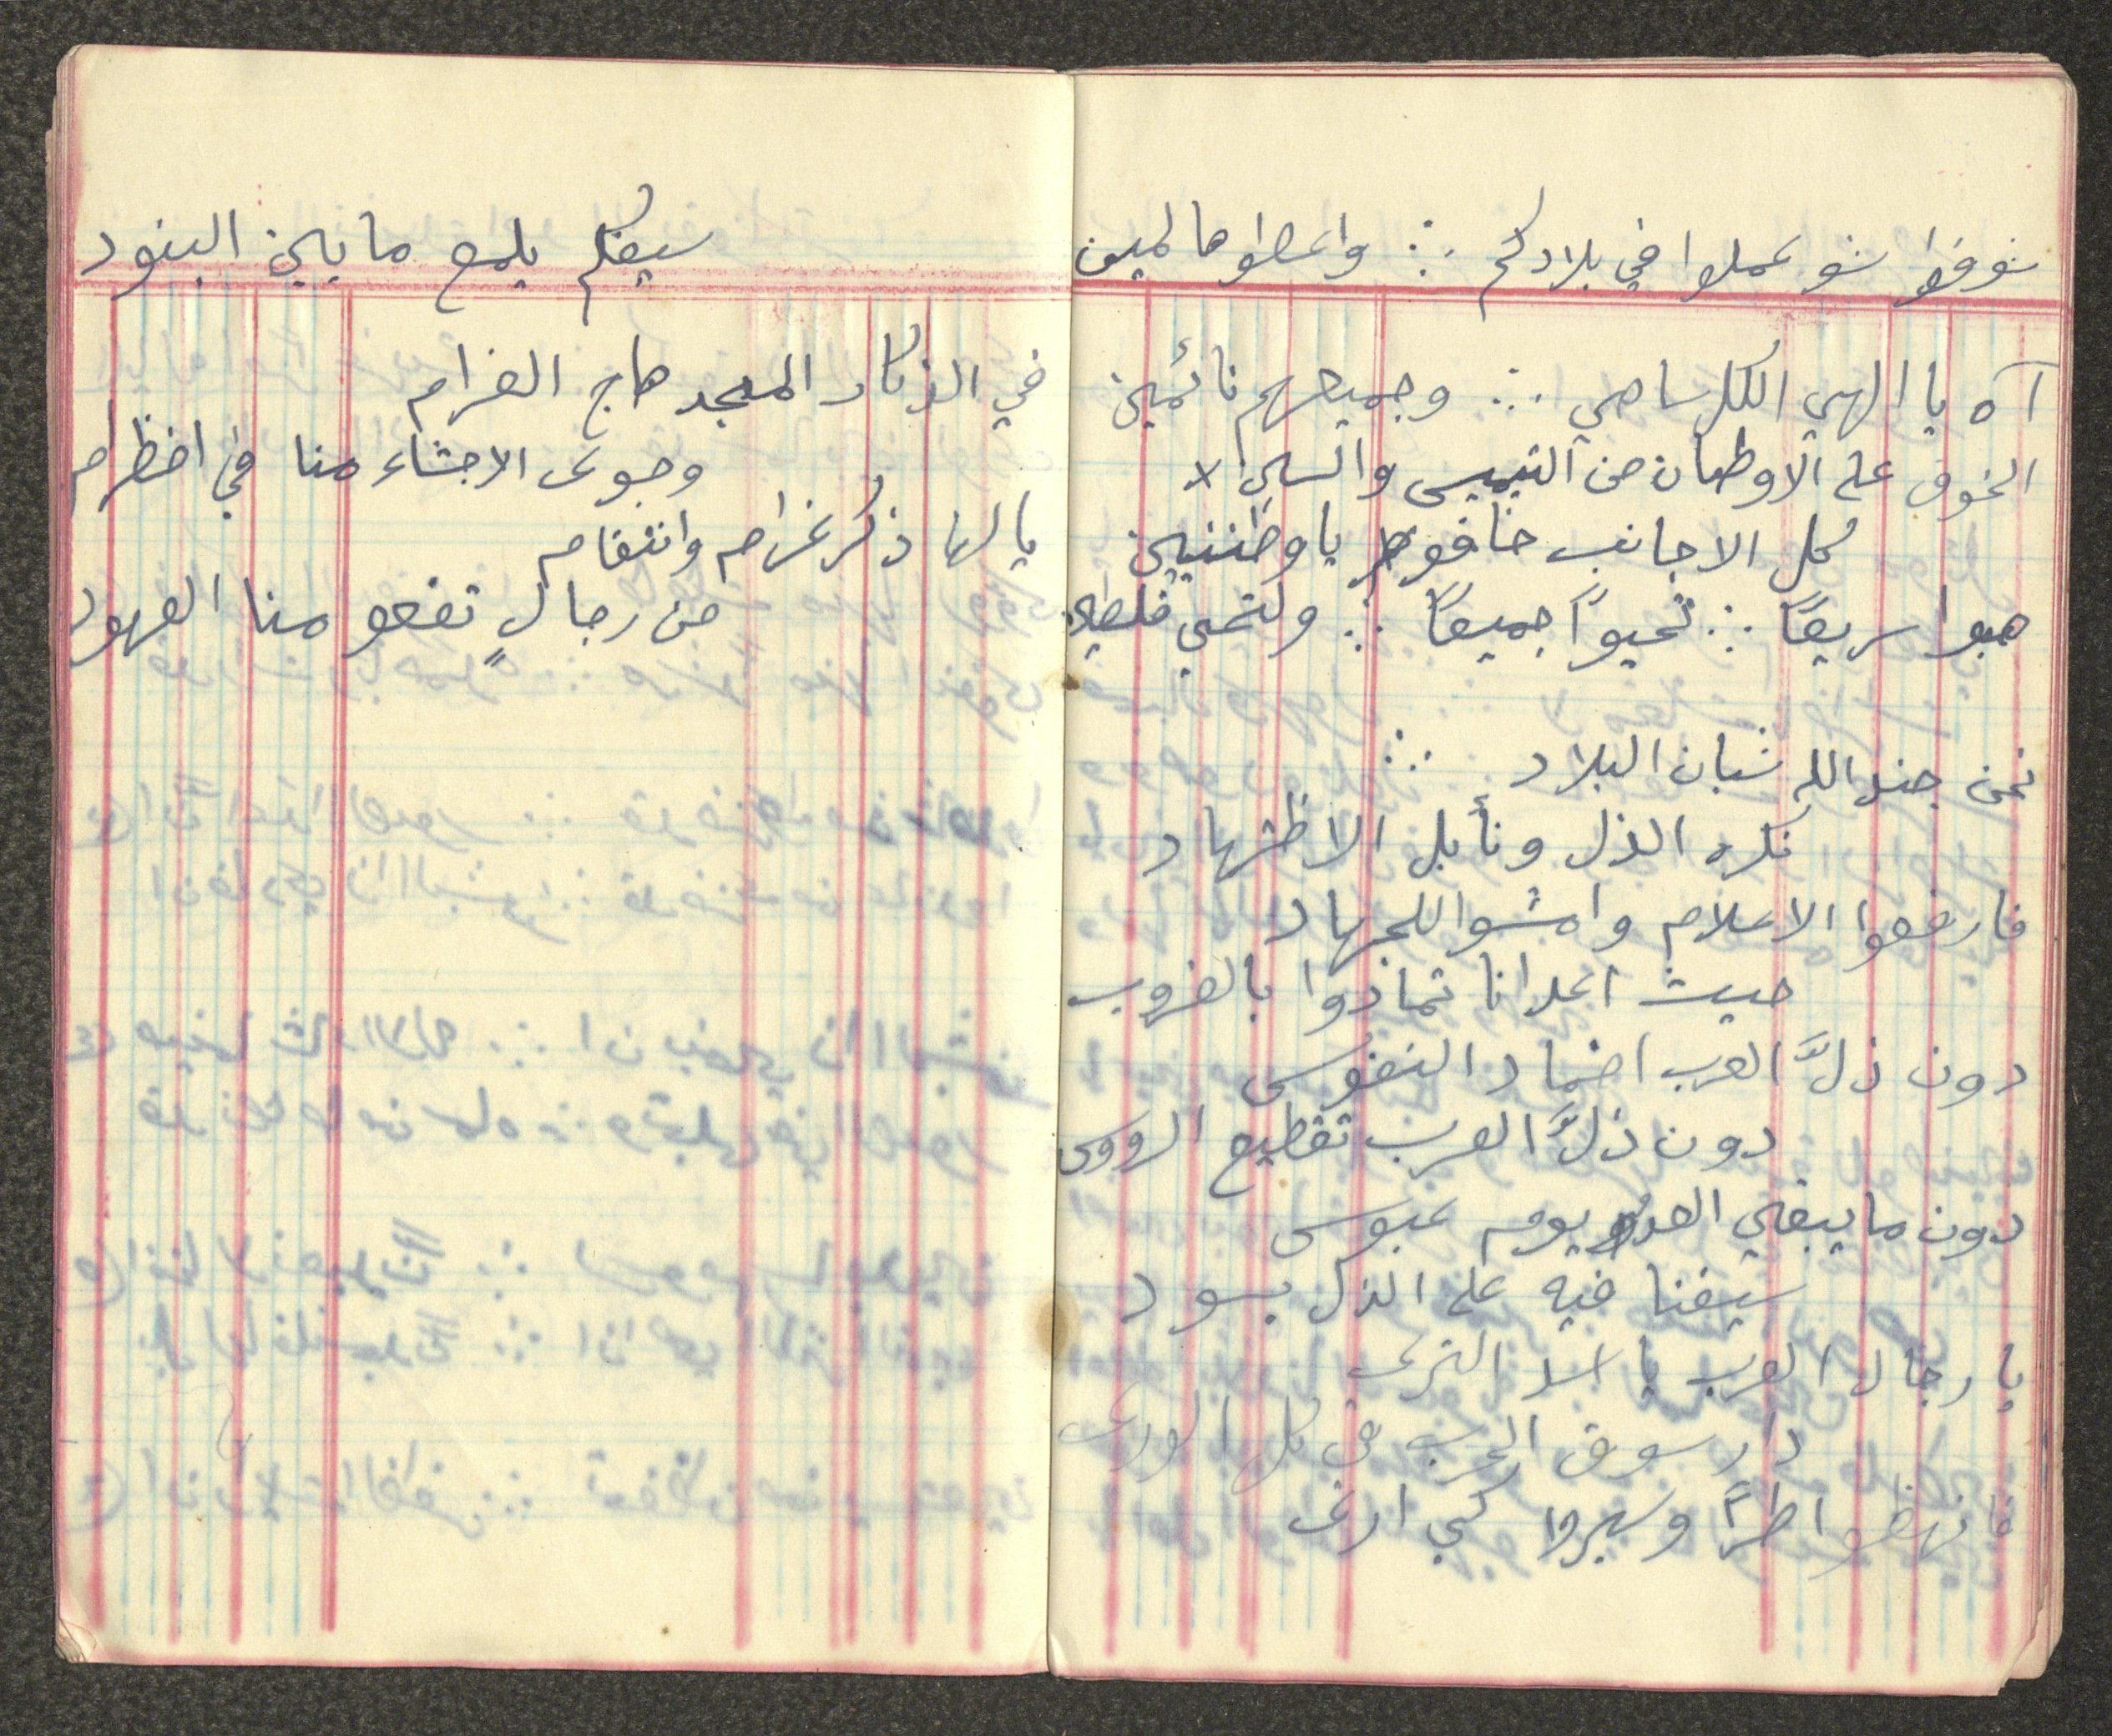 شوفوا شو عملوا في بلادكم ∴ واعطوها لمين
آه يا الهي الكل ساهي ∴ وجميعهم نائمين
الخوف على الاوطان من التيميس والسين لا
كل الاجانب خافوا يا وطنيين
هبوا سريعًا ∴ تحيواً جميعًا ∴ ولتحيي فلسطين
نحن جند الله شبان البلاد ∴
نكره الذل ونأبى الاظهاد
فارفعوا الاعلام وامشوا للجهاد
حيث اعدانا تمادوا بالغروب
دون ذلَّ العرب اخماد النفوس
دون ذلَّ العرب تقطيع الرووس
دون ما يبغي العدو يوم عبوس
سيفنا فيه على الذل يسود
يا رجال العرب يا اسد الثرى
دار سوق الحرب في كل الورى
فانهظوا طرًا وسيروا كي ارى
سيفكم يلمع ما بين البنود
في الذكار المجد هاج الغرام
وجوى الاحشاء منا في اضظرام
يا لها ذكر غرام وانتقام
من رجالٍ تقعو منا العهود